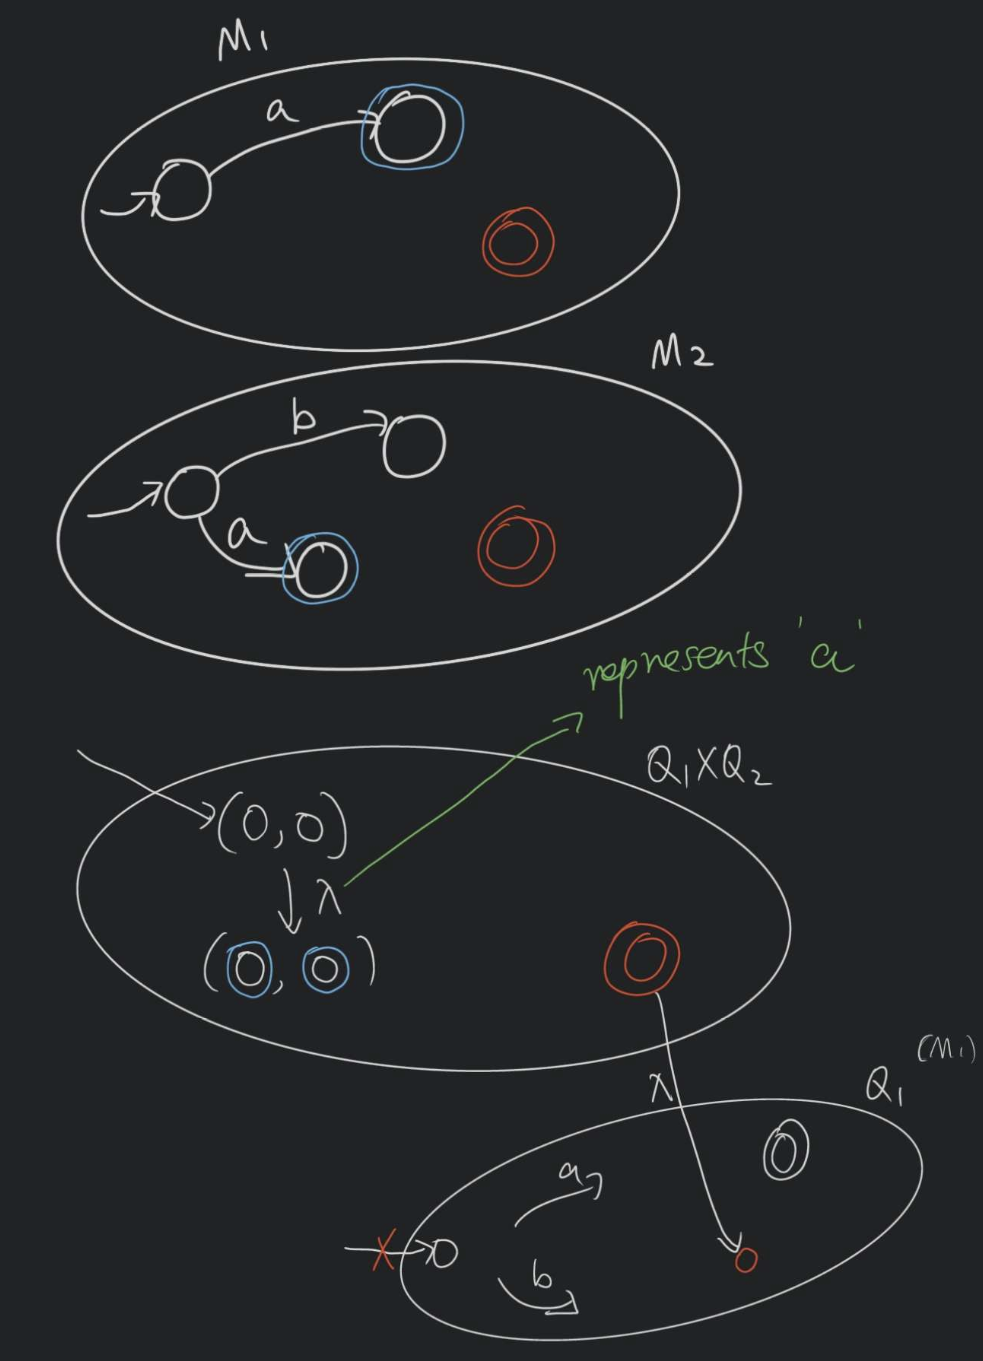 M1
a
M2
b
a
represents 'a'
Q1XQ2
(0,0)
λ
(0,0)
(M1)
Q1
λ
a
b
X